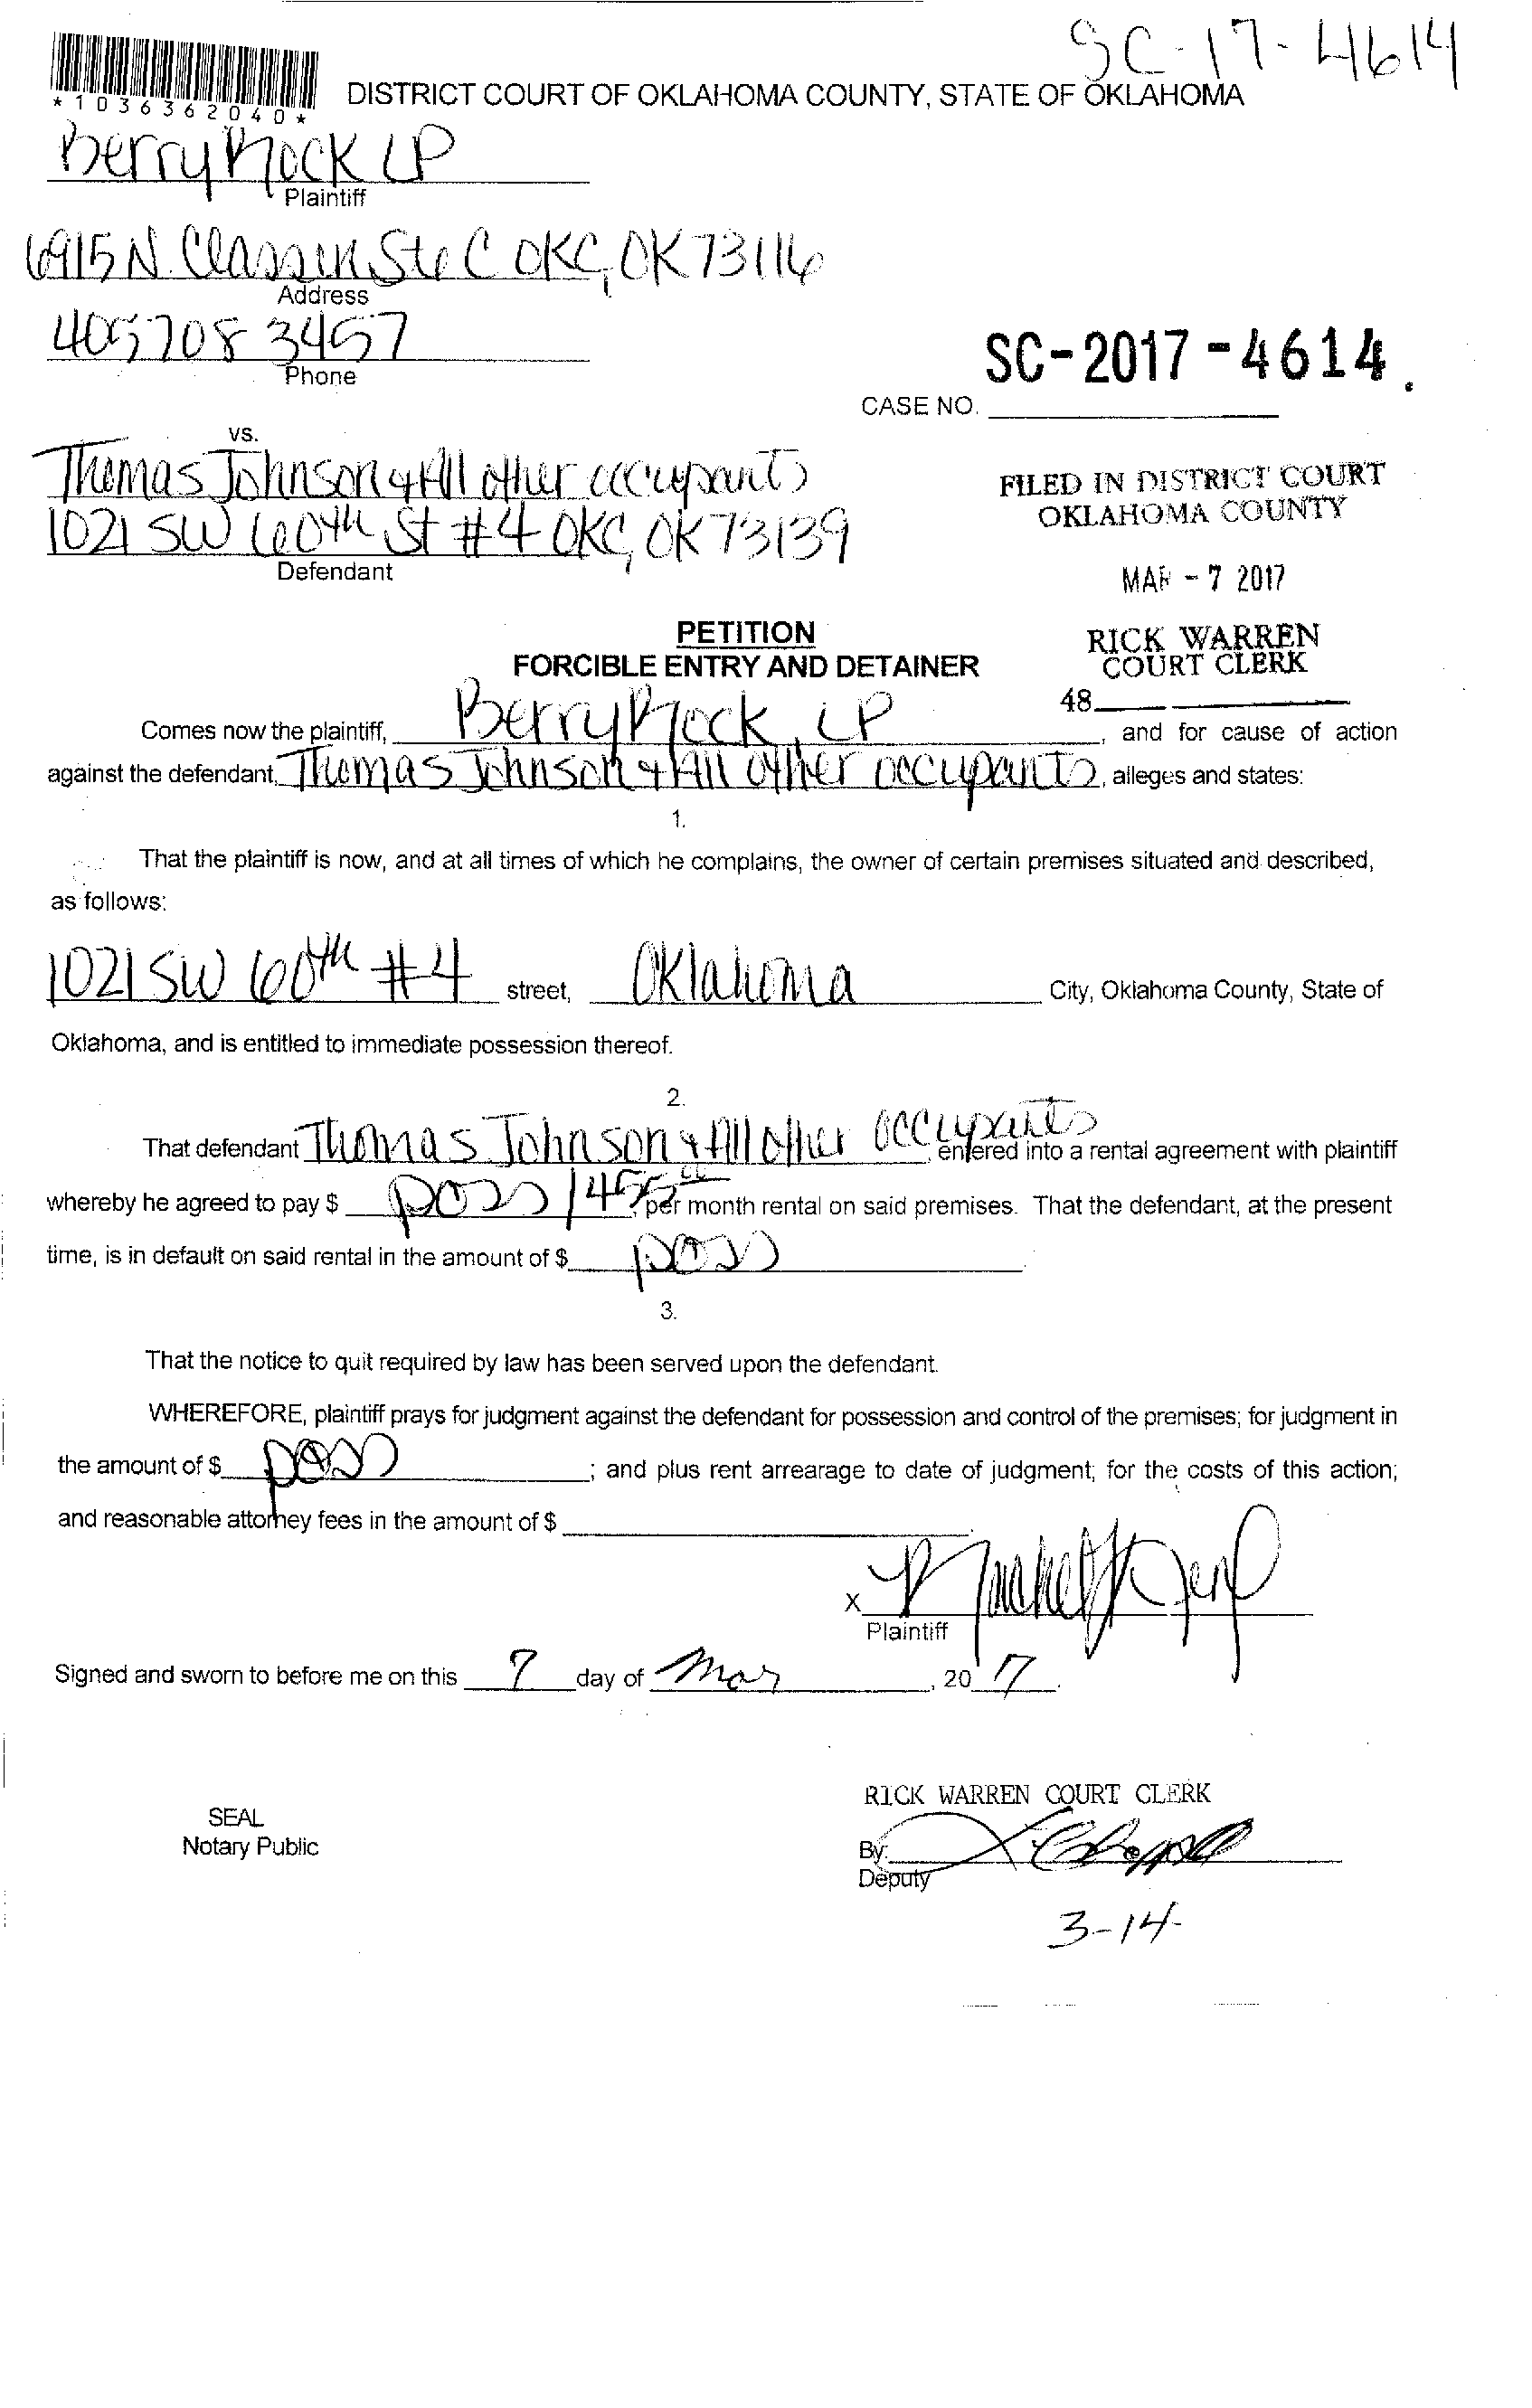 SC-17-4614
*1036362040*
DISTRICT COURT OF OKLAHOMA COUNTY, STATE OF OKLAHOMA
Berry Rock LP
Plaintiff
6915 N. Classen Ste C OKC, OK 73116
Address
405 708 3457
Phone
SC-2017-4614.
CASE NO.
vs.
Thomas Johnson & All other occupants
1021 SW 60th St #4 OKC, OK 73139
Defendant
FILED IN DISTRICT COURT
OKLAHOMA COUNTY
MAR - 7 2017
RICK WARREN
COURT CLERK
48
PETITION
FORCIBLE ENTRY AND DETAINER
Comes now the plaintiff, Berry Rock, LP, and for cause of action
against the defendant, Thomas Johnson & All other occupants, alleges and states:
1.
That the plaintiff is now, and at all times of which he complains, the owner of certain premises situated and described,
as follows:
1021 SW 60th #4 street, Oklahoma City, Oklahoma County, State of
Oklahoma, and is entitled to immediate possession thereof.
2.
That defendant Thomas Johnson & All other occupants, entered into a rental agreement with plaintiff
whereby he agreed to pay $ poss / 455, per month rental on said premises. That the defendant, at the present
time, is in default on said rental in the amount of $ poss.
3.
That the notice to quit required by law has been served upon the defendant.
WHEREFORE, plaintiff prays for judgment against the defendant for possession and control of the premises; for judgment in
the amount of $ poss; and plus rent arrearage to date of judgment; for the costs of this action;
and reasonable attorney fees in the amount of $.
X
Plaintiff
Signed and sworn to before me on this 7 day of Mar, 2017.
RICK WARREN COURT CLERK
SEAL
Notary Public
By:
Deputy
3-14-